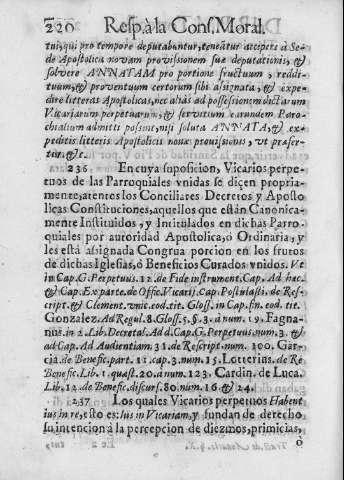 220 Resp. à la Cons. Moral.
tui, qui pro tempore deputabuntur, teneatur accipere à Se-
de Apostolica novam provissionem sue deputationis, &
solvere ANNATAM pro portione fructuum, reddi-
tuum, & proventuum certorum sibi assignata, & expe-
dire litteras Apostolicas, nec aliàs ad possessionem dictarum
Vicariarum perpetuarum, & servitium earundem Paro-
chialium admitti possint, nisi soluta ANNATA, & ex-
peditis litteris Apostolicis novæ provisionis, vt præfer-
tur, &c.
236 En cuya suposicion, Vicarios perpe-
tuos de las Parroquiales vnidas se diçen propria-
mente, atentos los Conciliares Decretos y Aposto
licas Constituciones, aquellos que están Canonica-
mente Instituìdos, y Intitulados en dichas Parro-
quiales por autoridad Apostolica, ò Ordinaria, y
les està assignada Congrua porcion en los frutos
de dichas Iglesias, ò Beneficios Curados vnidos. Vt
in Cap. G. Perpetuus. 12. de Fide instrument. Cap. Ad hæc.
& Cap. Ex parte. de Offic. Vicarij. Cap. Postulasti. de Res-
cript. & Clement. vnic. eod. tit. Gloss. in Cap. fin. eod. tit.
Gonzalez. Ad Regul. 8. Gloss. 5. §. 3. à num. 19. Fagna-
nus. in 2. Lib. Decretal. Ad d. Cap. G. Perpetuus. num. 3. &
ad Cap. Ad Audientiam. 31. de Rescript. num. 100. Gar-
cia. de Benefic. part. 11. cap. 3. num. 15. Lotterius. de Re
Benefic. Lib. 1. quæst. 20. à num. 123. Cardin. de Luca.
Lib. 12. de Benefic. discurs. 80. num. 16. & 24.
237 Los quales Vicarios perpetuos Habent
ius in re, esto es: Ius in Vicariam, y fundan de derecho
su intencion à la percepcion de diezmos, primicias,
ò